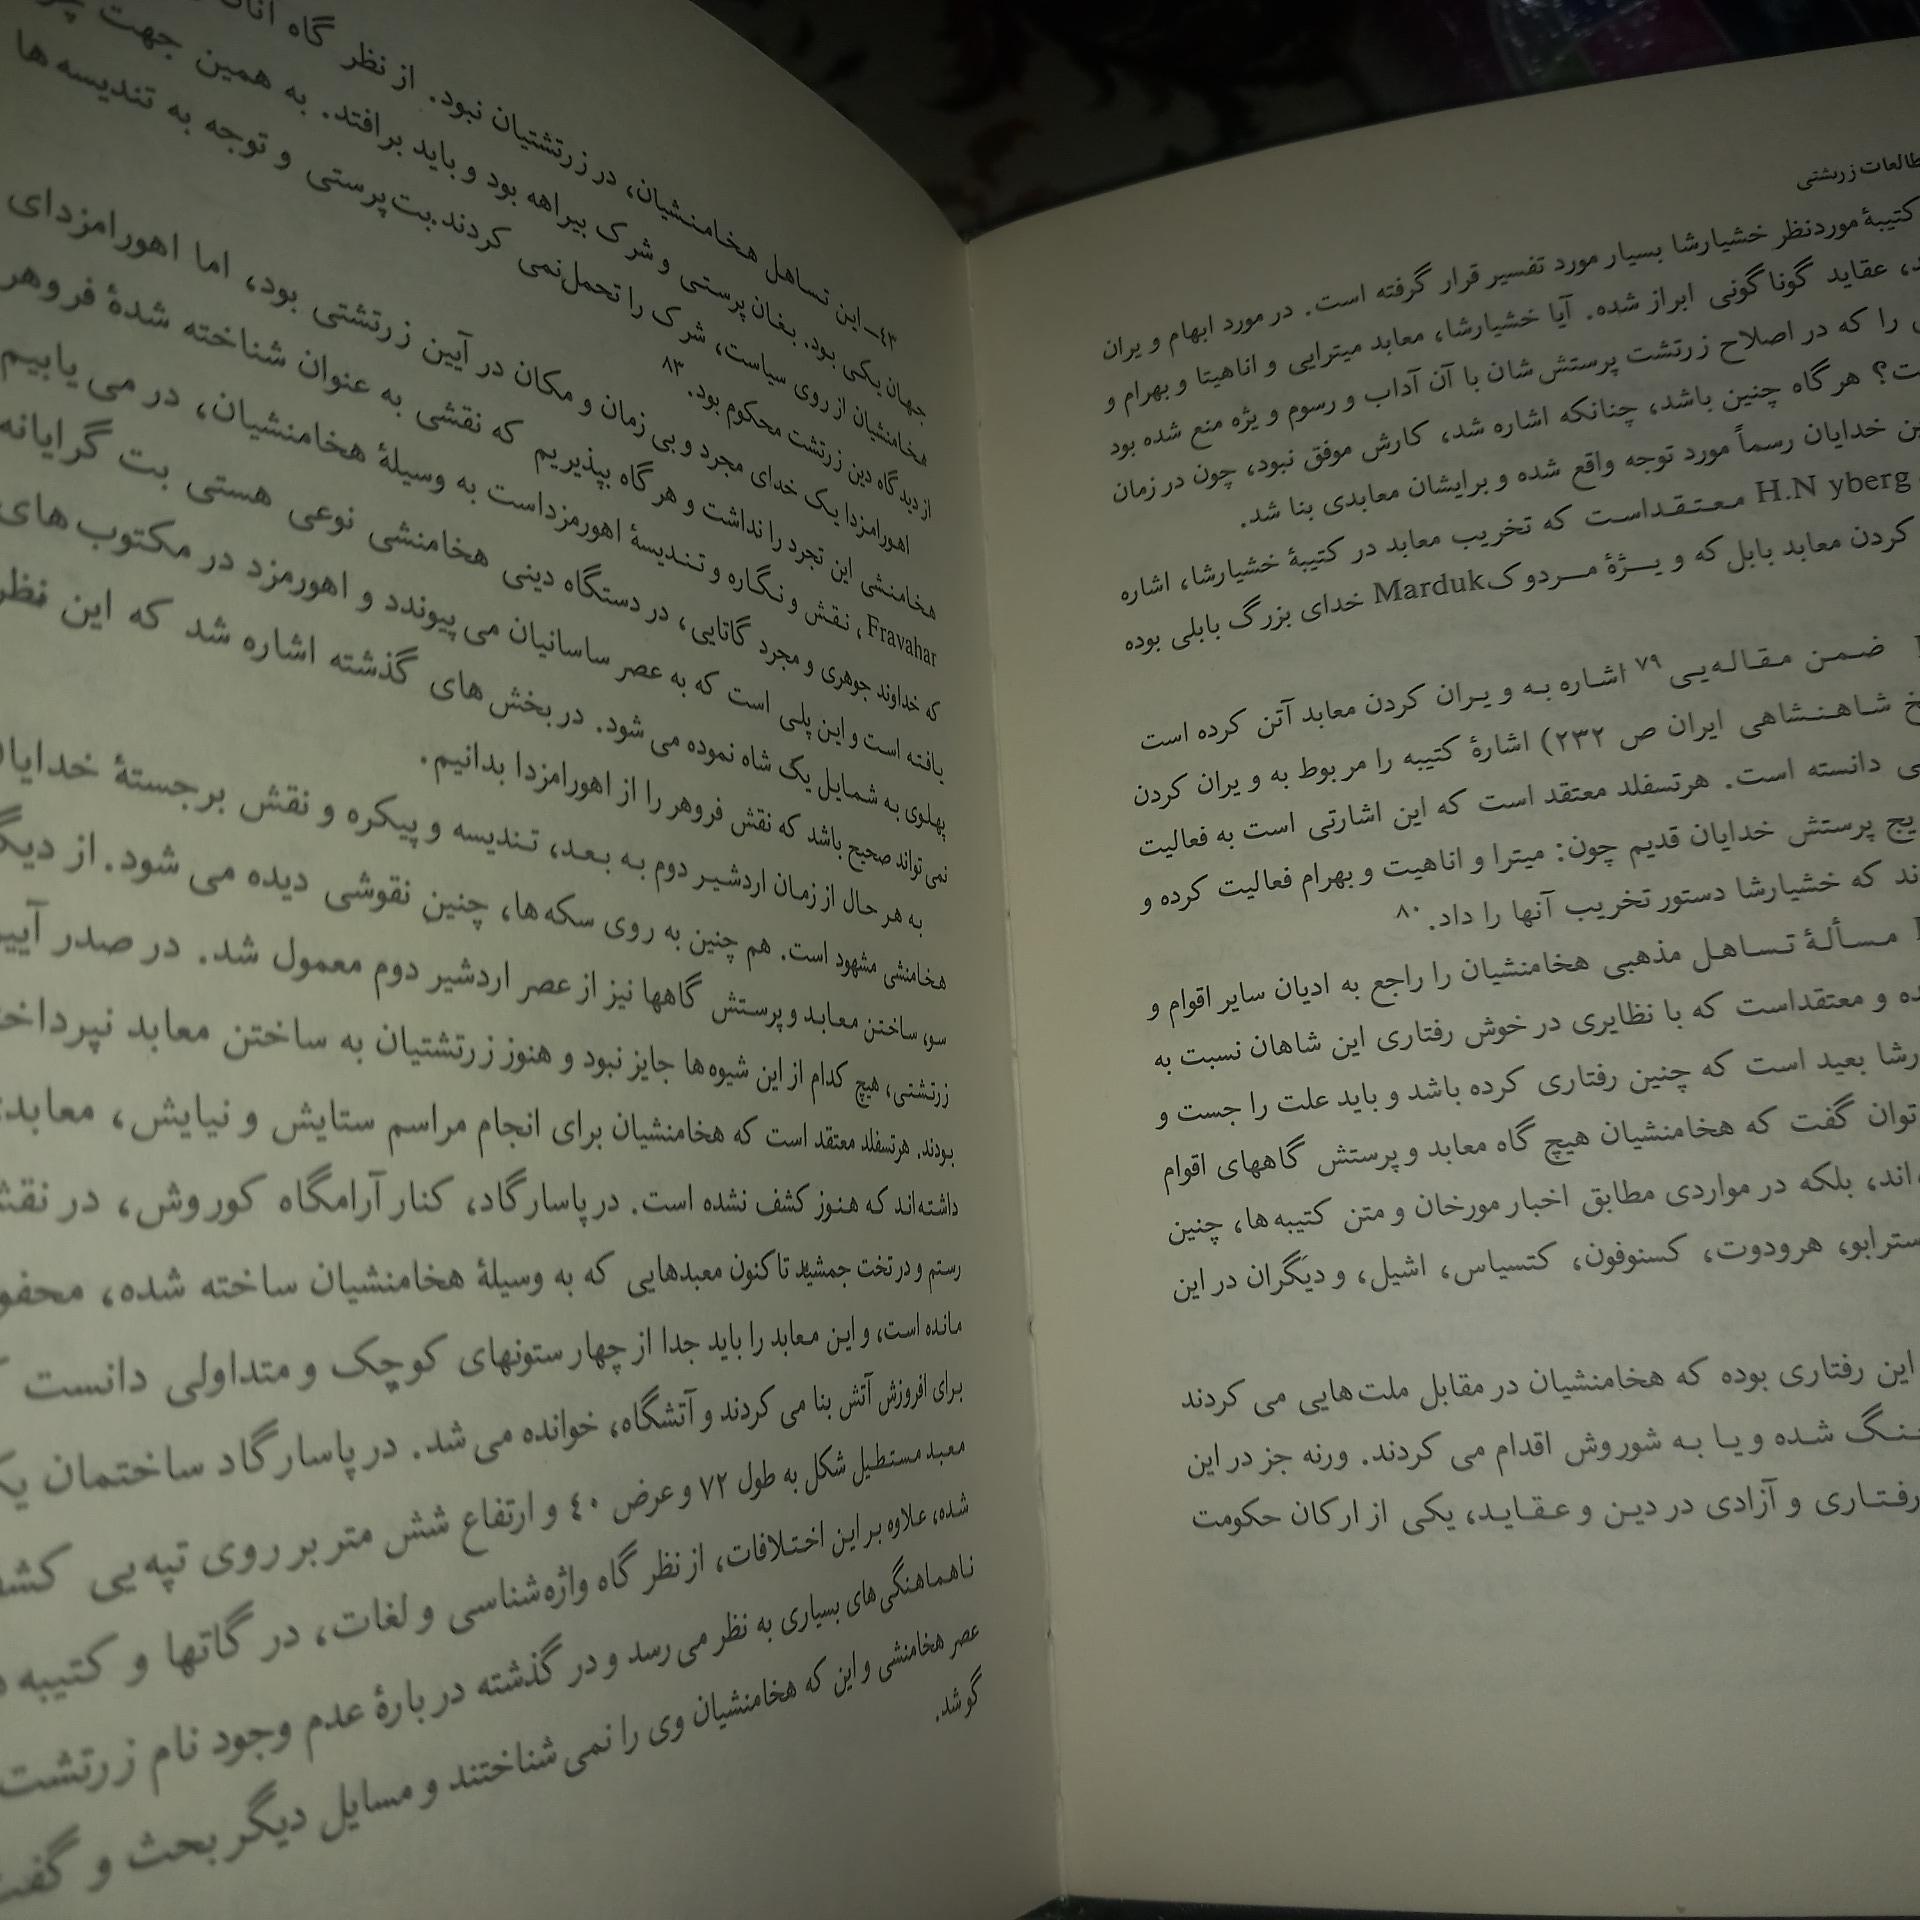 طالعات زرتشتی
کتیبهٔ موردنظر خشیارشا بسیار مورد تفسیر قرار گرفته است. در مورد ابهام و یران
د، عقاید گوناگونی ابراز شده. آیا خشیارشا، معابد میترایی و اناهیتا و بهرام و
را که در اصلاح زرتشت پرستش شان با آن آداب و رسوم و یژه منع شده بود
ت؟ هر گاه چنین باشد، چنانکه اشاره شد، کارش موفق نبود، چون در زمان
ن خدایان رسماً مورد توجه واقع شده و برایشان معابدی بنا شد.
H.N yberg معتقداست که تخریب معابد در کتیبهٔ خشیارشا، اشاره
کردن معابد بابل که و یژهٔ مردوک Marduk خدای بزرگ بابلی بوده
ضمن مقاله‌یی ۷۹ اشاره به و یران کردن معابد آتن کرده است
خ شاهنشاهی ایران ص ۲۳۲) اشارهٔ کتیبه را مربوط به و یران کردن
ی دانسته است. هرتسفلد معتقد است که این اشارتی است به فعالیت
یج پرستش خدایان قدیم چون: میترا و اناهیت و بهرام فعالیت کرده و
ند که خشیارشا دستور تخریب آنها را داد. ۸۰
مسألهٔ تساهل مذهبی هخامنشیان را راجع به ادیان سایر اقوام و
ده و معتقداست که با نظایری در خوش رفتاری این شاهان نسبت به
رشا بعید است که چنین رفتاری کرده باشد و باید علت را جست و
توان گفت که هخامنشیان هیچ گاه معابد و پرستش گاههای اقوام
اند، بلکه در مواردی مطابق اخبار مورخان و متن کتیبه ها، چنین
سترابو، هرودوت، کسنوفون، کتسیاس، اشیل، و دیگران در این
این رفتاری بوده که هخامنشیان در مقابل ملت هایی می کردند
نگ شده و یا به شوروش اقدام می کردند. ورنه جز در این
رفتاری و آزادی در دین و عقاید، یکی از ارکان حکومت
۴۳ـ این تساهل هخامنشیان، در زرتشتیان نبود. از نظر گاه
جهان یکی بود. بغان پرستی و شرک بیراهه بود و باید برافتد. به همین جهت
هخامنشیان از روی سیاست، شرک را تحمل نمی کردند. بت پرستی و توجه به تندیسه ها
از دید گاه دین زرتشت محکوم بود. ۸۳
اهورامزدا یک خدای مجرد و بی زمان و مکان در آیین زرتشتی بود، اما اهورامزدای
هخامنشی این تجرد را نداشت و هر گاه بپذیریم که نقشی به عنوان شناخته شدهٔ فروهر
Fravahar، نقش و نگاره و تندیسهٔ اهورمزداست به وسیلهٔ هخامنشیان، در می یابیم
که خداوند جوهری و مجرد گاتایی، در دستگاه دینی هخامنشی نوعی هستی بت گرایانه
یافته است و این پلی است که به عصر ساسانیان می پیوندد و اهورمزد در مکتوب های
پهلوی به شمایل یک شاه نموده می شود. در بخش های گذشته اشاره شد که این نظر
نمی تواند صحیح باشد که نقش فروهر را از اهورامزدا بدانیم.
به هر حال از زمان اردشیر دوم به بعد، تندیسه و پیکره و نقش برجستهٔ
هخامنشی مشهود است. هم چنین به روی سکه ها، چنین نقوشی دیده می شود. از
سو، ساختن معابد و پرستش گاهها نیز از عصر اردشیر دوم معمول شد. در صدر
زرتشتی، هیچ کدام از این شیوه ها جایز نبود و هنوز زرتشتیان به ساختن معابد
بودند. هرتسفلد معتقد است که هخامنشیان برای انجام مراسم ستایش و نیایش،
داشته‌اند که هنوز کشف نشده است. در پاسارگاد، کنار آرامگاه کوروش، در
رستم و در تخت جمشید تا کنون معبدهایی که به وسیلهٔ هخامنشیان ساخته شده،
مانده است، و این معابد را باید جدا از چهار ستونهای کوچک و متداولی دانست
برای افروزش آتش بنا می کردند و آتشگاه، خوانده می شد. در پاسارگاد ساختمان
معبد مستطیل شکل به طول ۷۲ و عرض ۴۰ و ارتفاع شش متر بر روی تپه یی
شده، علاوه بر این اختلافات، از نظر گاه واژه شناسی و لغات، در گاتها و کتیبه
ناهماهنگی های بسیاری به نظر می رسد و در گذشته در بارهٔ عدم وجود نام زرتشت
عصر هخامنشی و این که هخامنشیان وی را نمی شناختند و مسایل دیگر بحث و
گو شد.